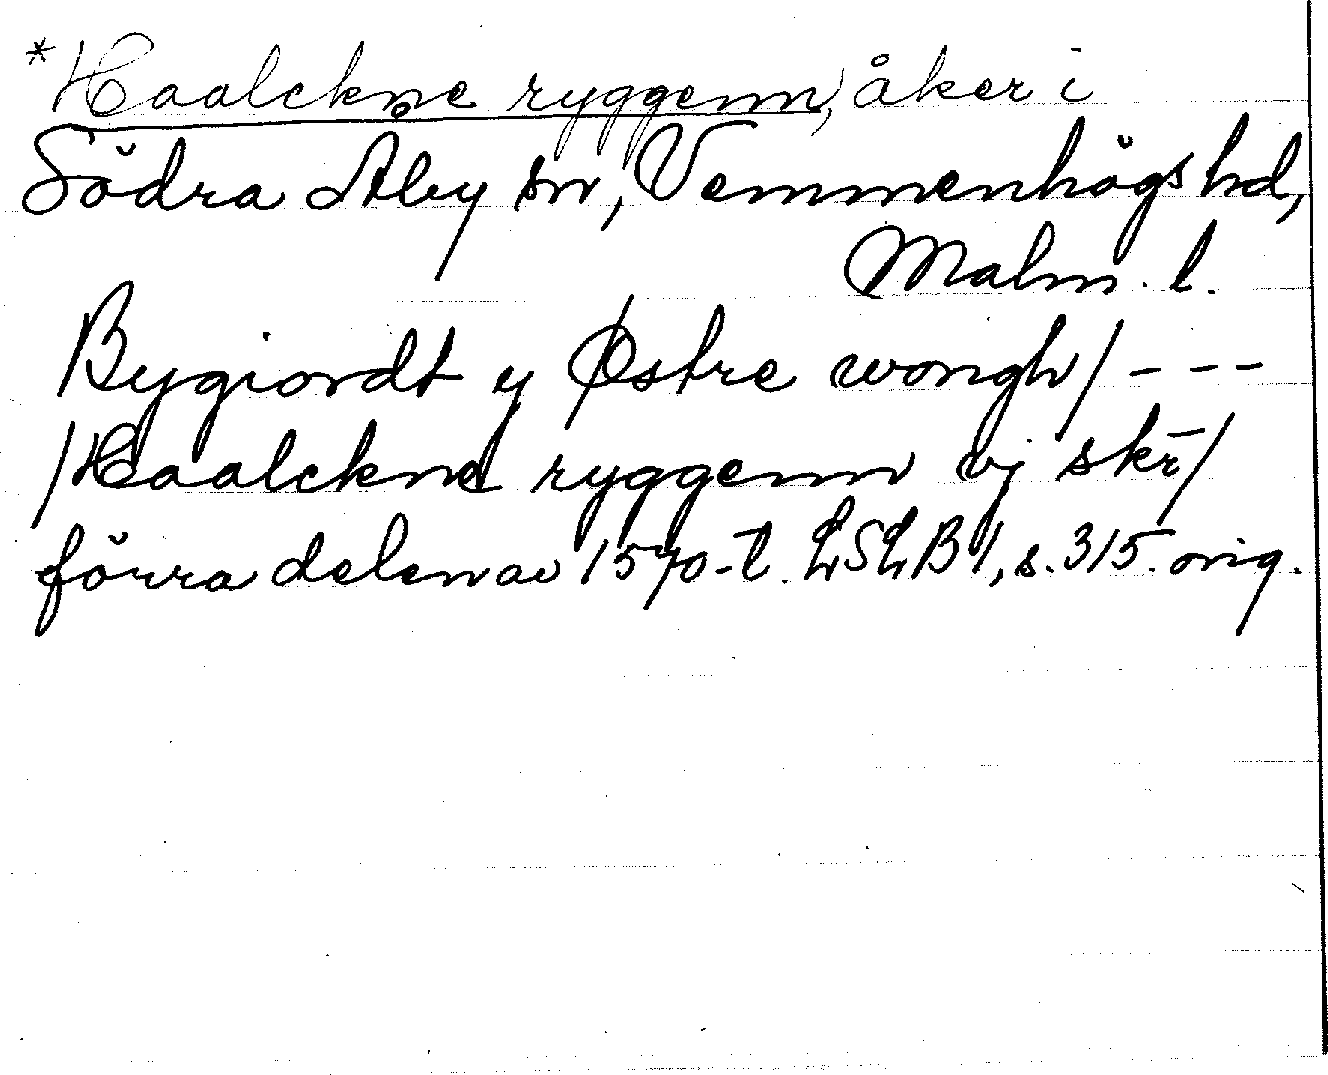 *Haalckne ryggenn, åker i
Södra Åby sn, Vemmenhögs hd,
Malm. l.
Bygiordt y Østre wongh/ - - -
/Haalckne ryggenn vj skr̄/
förra delen av 1570-t. LSLB 1, s. 315. orig.